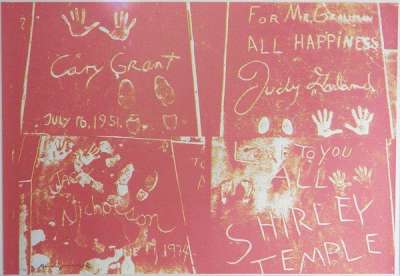 Cary Grant
JULY 16, 1951.
FOR MR. GRAUMAN
ALL HAPPINESS
Judy Garland
Nicholson
1974
TO YOU
ALL
SHIRLEY
TEMPLE